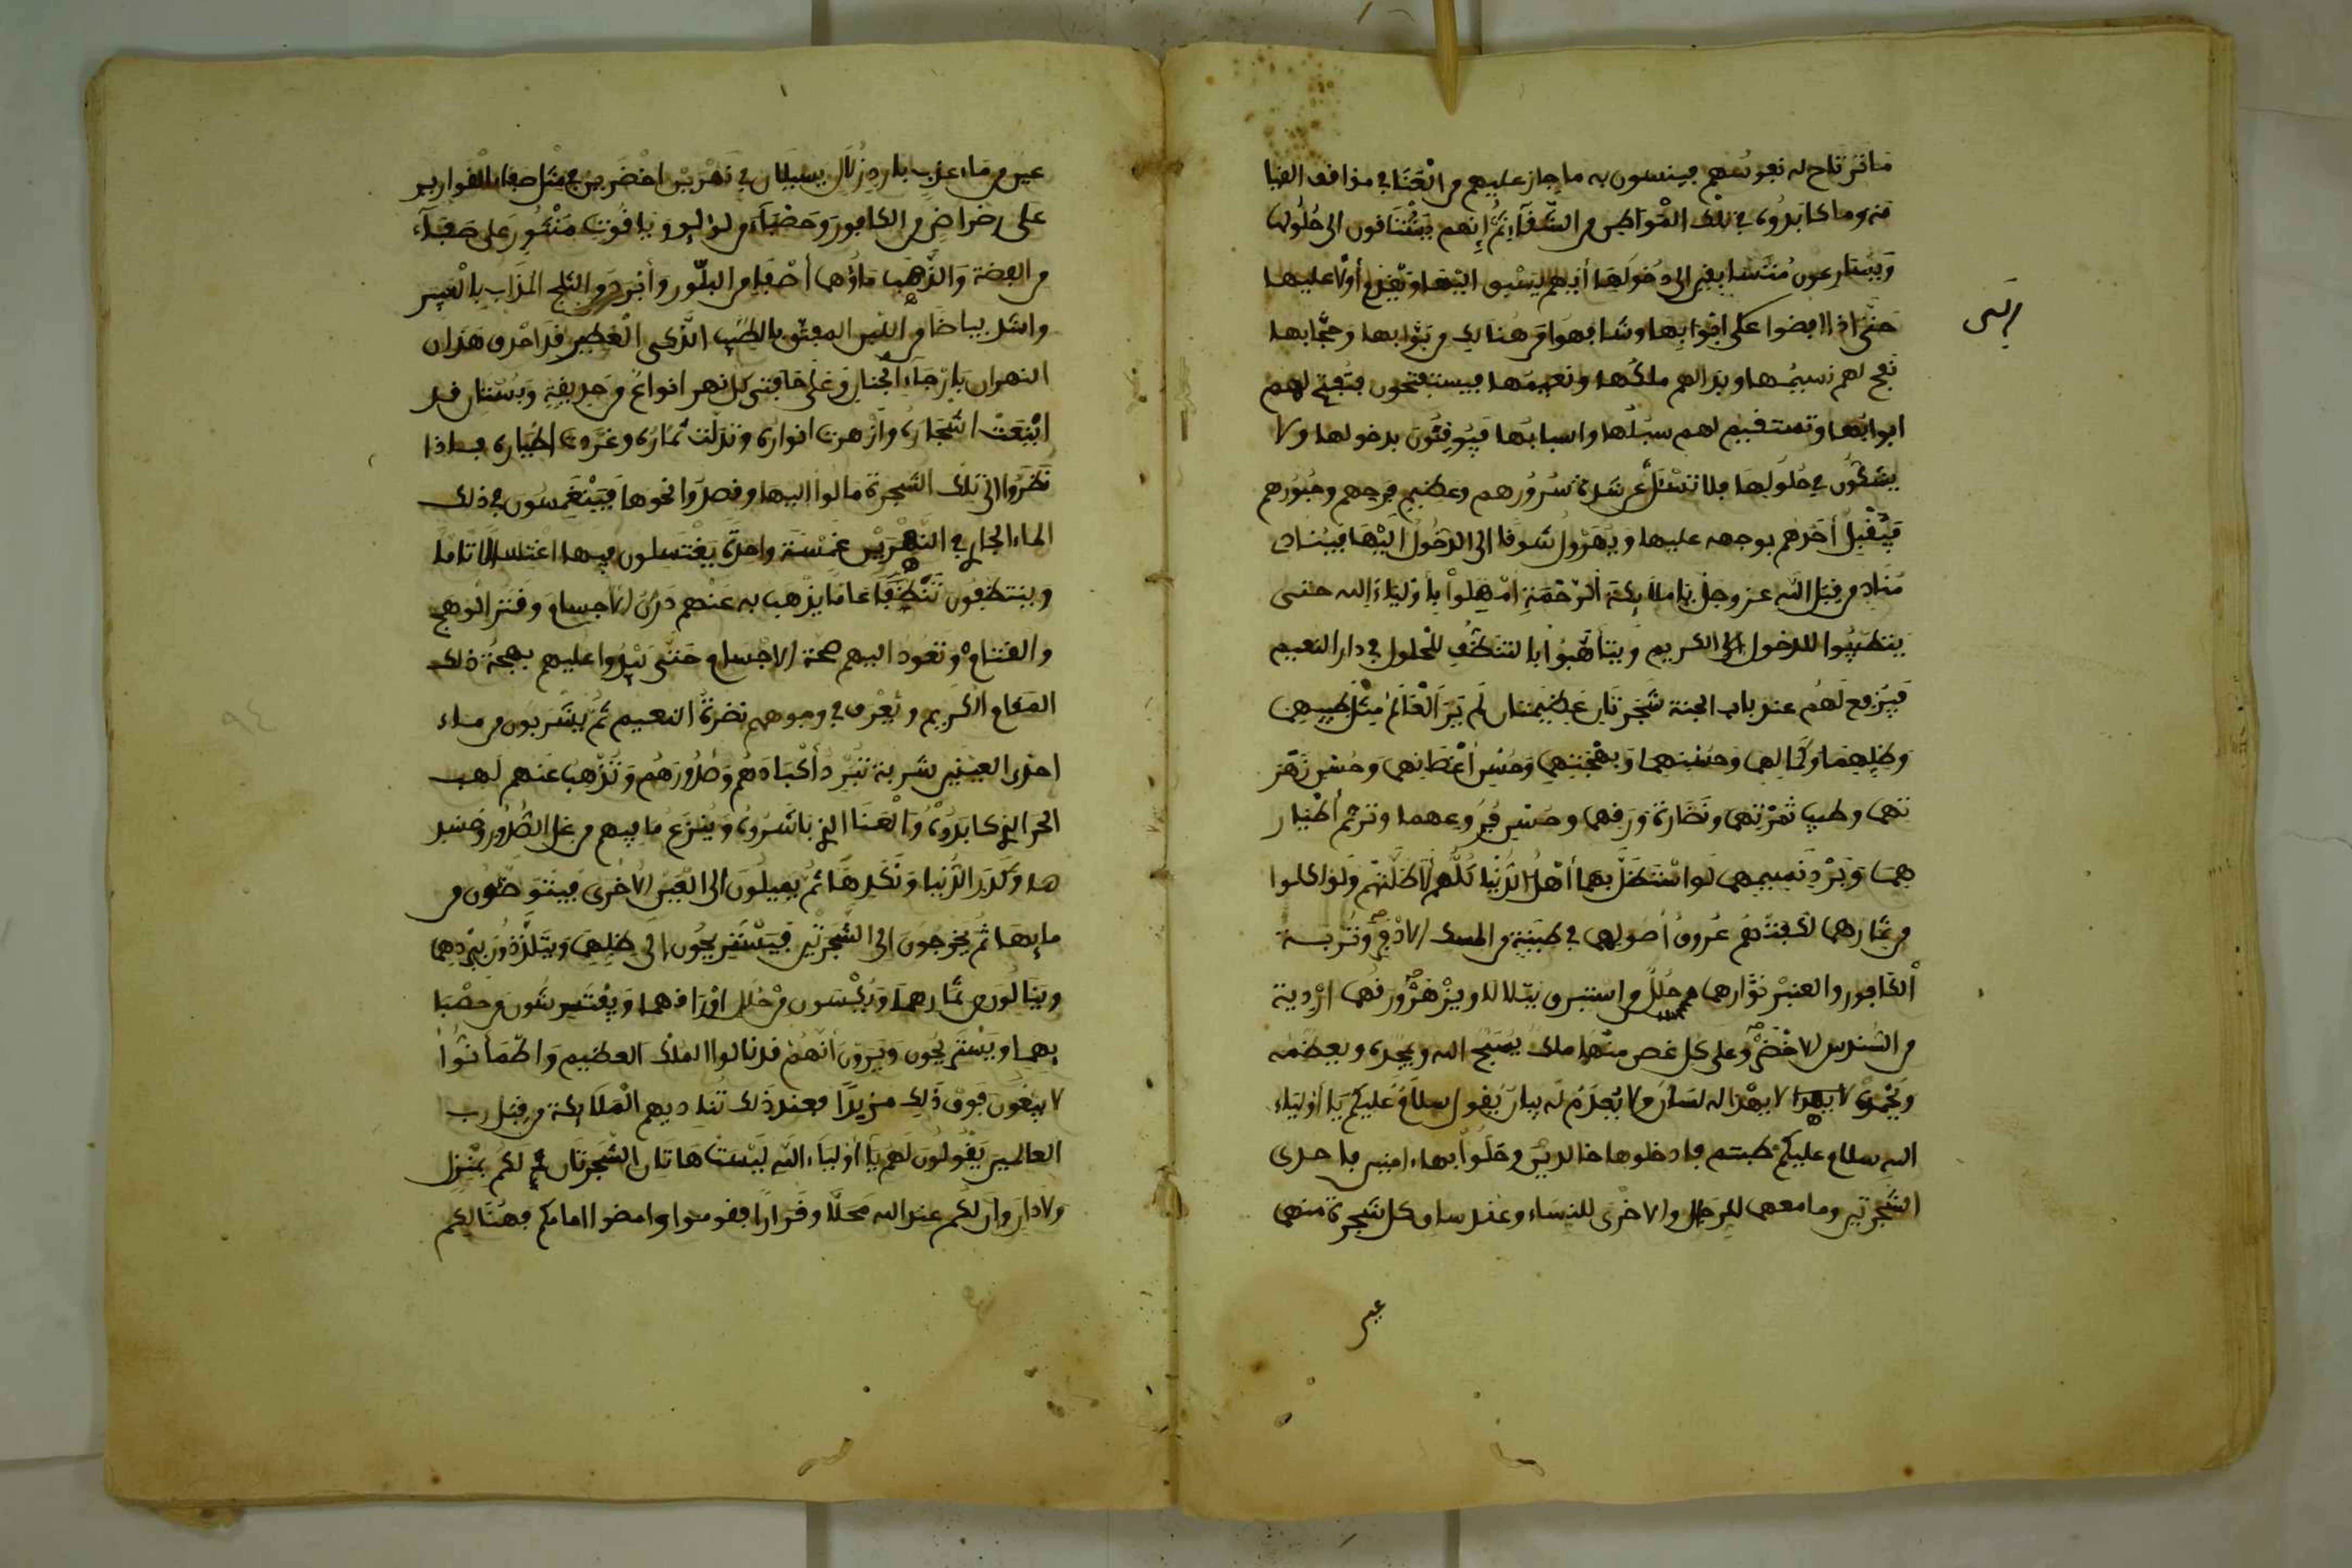 ما ترتاح له نفوسهم فينسون به ما جاز عليهم من العنا في مواقف القيا
مة وما كابدوه في تلك المواطن من الشقاء ثم انهم يشتاقون الى حلولها
ويتسارعون متسابقين الى دخولها أيهم يسبق اليها ويقدم أولا عليها
حتى اذا افضوا على ابوابها وشافهوا من هنالك من بوابها وحجابها
نفح لهم نسيمها وبدا لهم ملكها ونعيمها فيستفتحون فتفتح لهم
ابوابها وتستقيم لهم سبلها واسبابها فيوقنون بدخولها ولا
يشكون في حلولها فلا تسئل عن شدة سرورهم وعظيم فرحهم وحبورهم
فيقبل أحدهم بوجهه عليها ويهرول شوقا الى الدخول اليها فينادى
مناد من قبل الله عز وجل يا ملائكة الرحمة امهلوا بأولياء الله حتى
يتطيبوا للدخول الى الكريم ويتأهبوا بالتنظف للحلول في دار النعيم
فيرفع لهم عند باب الجنة شجرتان عظيمتان لم ير العالم مثل طيبهما
وظلهما وكمالهما وحسنهما وبهجتهما وحسن أغصانهما وحسن زهر
تهما وطيب ثمرتهما ونضارة ورقهما وحسن فروعهما وترنم أطيار
هما وبرد نسيمهما لو استظل بهما أهل الدنيا كلهم لأظلتهم ولو اكلوا
من ثمارهما لكفتهم عروق أصولهما في طينة من المسك الاذفر وتربة
الكافور والعنبر نوارهما حلل من استبرق يتلالا ويزهر ورقهما اردية
من السندس الاخضر وعلى كل غصن منهما ملك يسبح الله ويمجده ويعظمه
لا يهدا له لسان ولا يعدم له بيان يقول سلام عليكم يا أولياء
الله سلام عليكم طبتم فادخلوها خالدين وحلوا بها ءامنين فاحدى
الشجرتين وما معهما للرجال والاخرى للنساء وعند ساق كل شجرة منهما
عين
عين من ماء عذب بارد زلال يسيلان في نهرين اخضرين في مثل صفاء القوارير
على رضراض من الكافور وحصباء من لؤلؤ وياقوت منثور على صفاء
من الفضة والذهب ماؤهما أصفى من البلور وأبرد من الثلج المذاب بالعبير
واشد بياضا من اللبن المفتق بالطيب الذكى العطير قد احدق هذان
النهران بارجاء الجنان وعلى حافتى كل نهر انواع من حديقة وبستان قد
اينعت اشجاره وازهرت انواره وتدلت ثماره وغردت اطياره فاذا
نظروا الى تلك الشجرة مالوا اليها وقصدوا نحوها فينغمسون في ذلك
الماء الجارى في النهرين غمسة واحدة يغتسلون فيها اغتسالا تاما
وينتظفون تنظفا عاما يذهب به عنهم درن الاجسام وقتر الوهج
والقتام وتعود اليهم صحة الاجسام حتى يبدوا عليهم بهجة ذلك
المقام الكريم وتعرف في وجوههم نضرة النعيم ثم يشربون من ماء
احدى العينين شربة تبرد أكبادهم وصدورهم وتذهب عنهم لهب
الحر الذى كابدوه والعنا الذى باشروه وينزع ما فيهم من غل الصدور وحسد
ها وكدر الدنيا ونكدها ثم يميلون الى العين الاخرى فيتوضئون من
مايها ثم يخرجون الى الشجرتين فيستريحون الى ظلهما ويتلذذون ببردهما
وينالون من ثمارهما ويكسون من حلل اوراقهما ويفترشون من حصبا
بهما ويستريحون ويرون أنهم قد نالوا الملك العظيم واطمأنوا
لا يبغون فوق ذلك مزيدا فعند ذلك تناديهم الملائكة من قبل رب
العالمين يقولون لهم يا اولياء الله ليست هاتان الشجرتان لكم بمنزل
ولا دار وان لكم عند الله محلا وقرارا فقوموا وامضوا امامكم فهنالكم